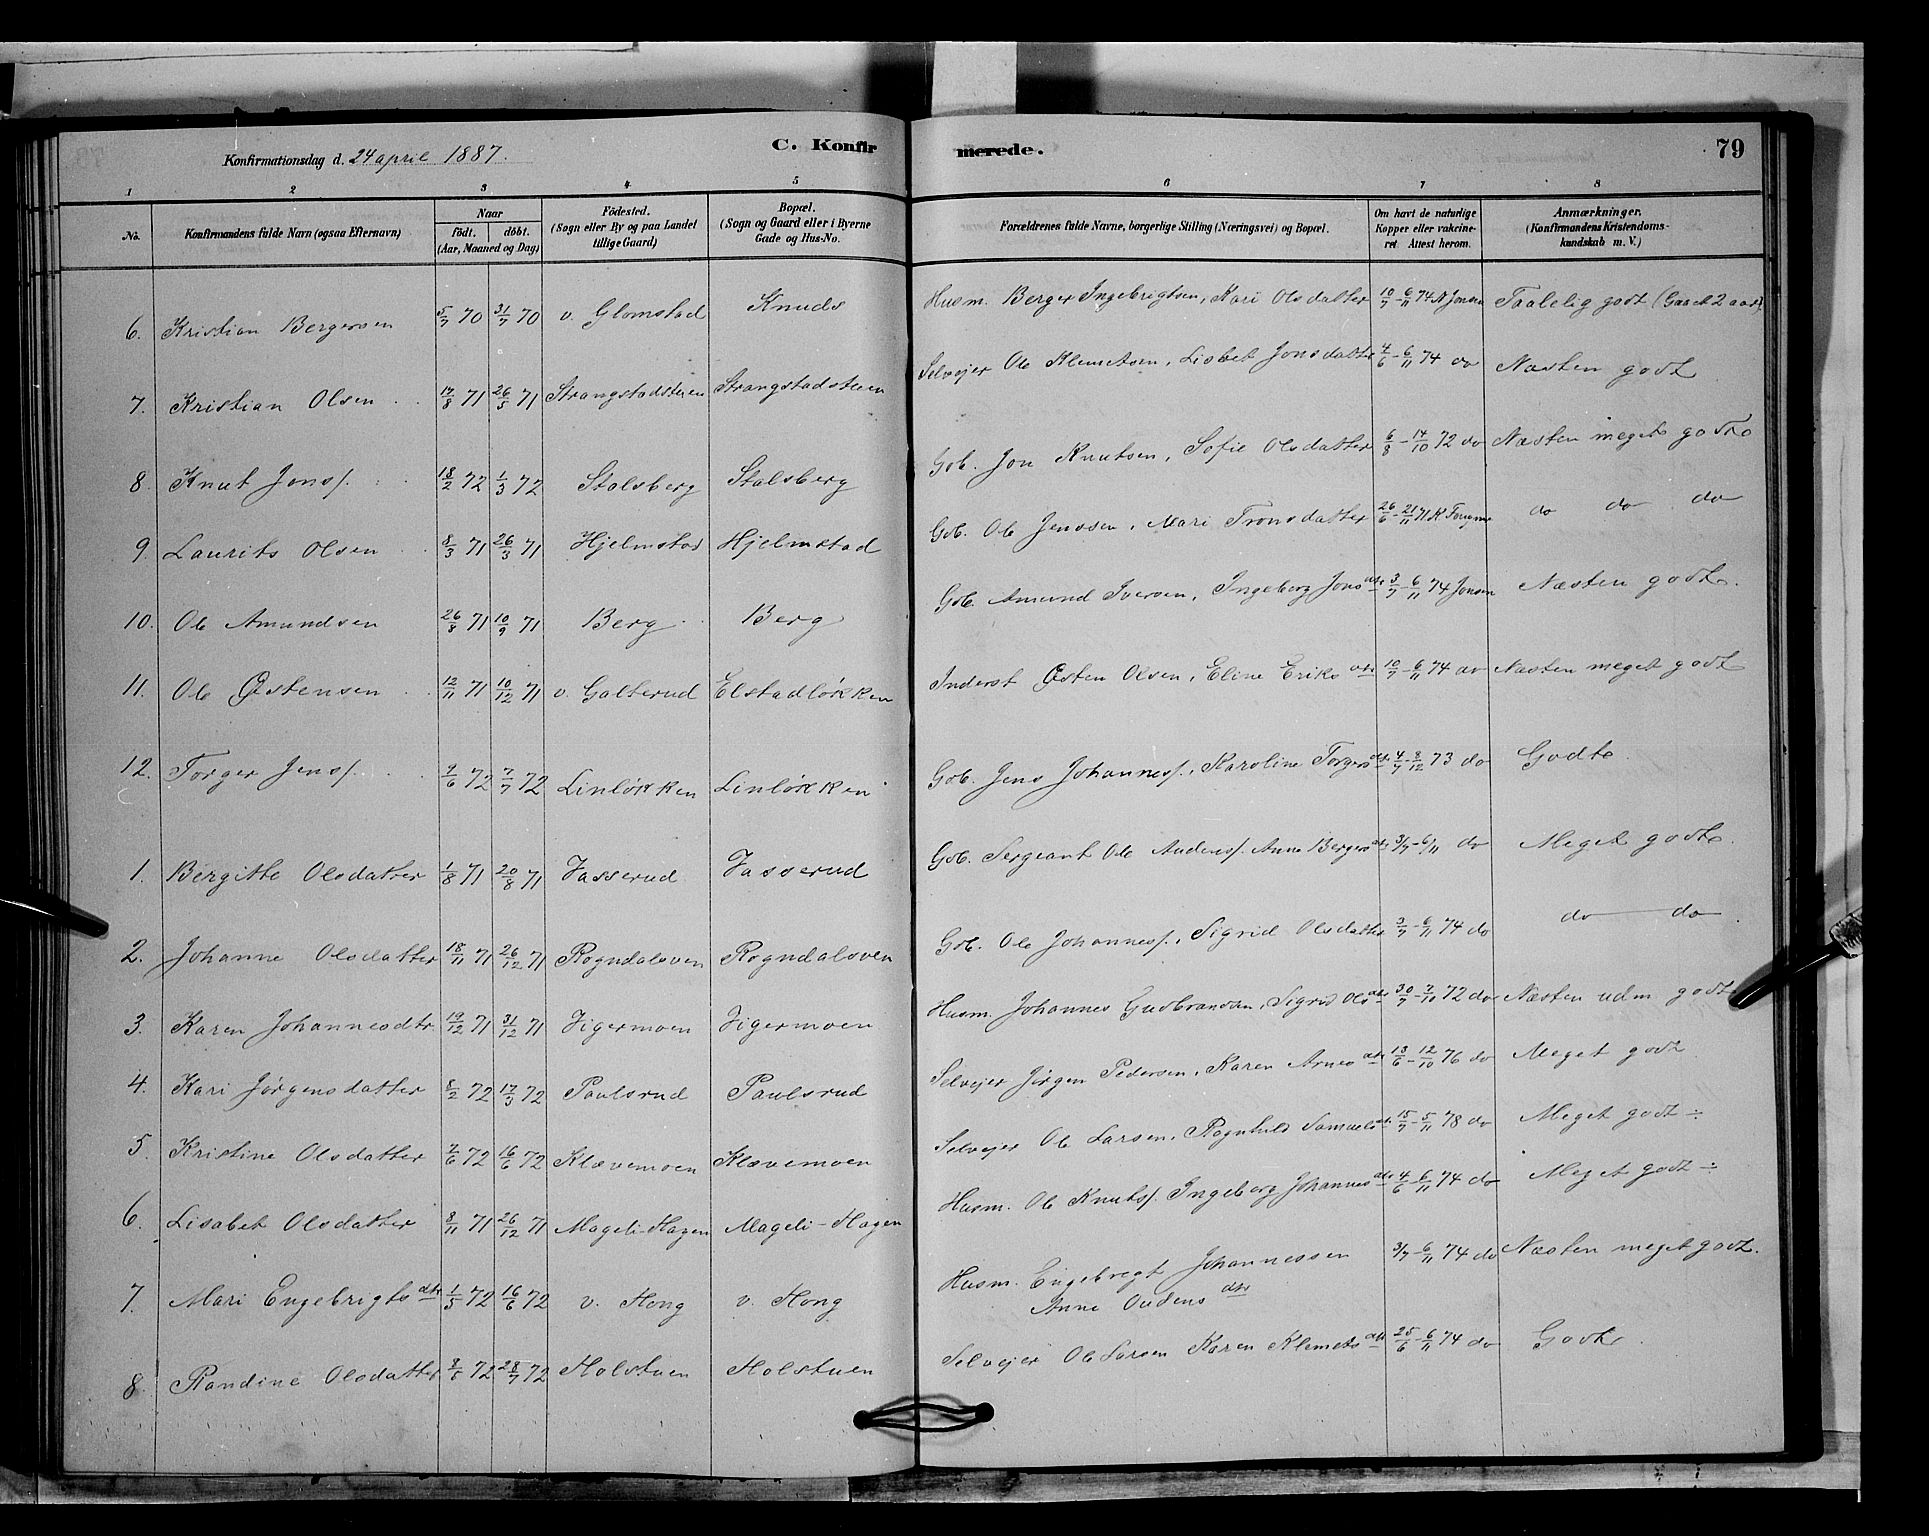 Konfirmationsdag d. 24 april 1887.
C. Konfirmerede.
79
1 2 3 4 5 6 7 8
No.
Konfirmandens fulde Navn (ogsaa Efternavn)
Naar
födt. döbt.
(Aar, Maaned og Dag)
Födested.
(Sogn eller By og paa Landet
tillige Gaard)
Bopæl.
(Sogn og Gaard eller i Byerne
Gade og Hus-No.
Forældrenes fulde Navne, borgerlige Stilling (Næringsvei) og Bopæl.
Om havt de naturlige
Kopper eller vakcine-
ret. Attest herom.
Anmærkninger.
(Konfirmandens Kristendoms-
kundskab m. V.)
6. Kristian Bergersen 5/7 70 31/7 70 v. Glomstad Knuds Husm. Berger Ingebrigtsen, Kari Olsdatter 10/7 - 6/11 74 Jonsen Taalelig godt (Gaaet 2 aar)
7. Kristian Olsen 71 71 Strangstadstuen Strangstadstuen Selvejer Ole Klemetsen, Lisbet Jonsdatter 4/6 - 6/11 74 do Næsten godt
8. Knut Jons. 18/2 72 1/3 72 Stalsberg Stalsberg Gob. Jon Knutsen, Sofie Olsdatter 6/8 - 14/10 72 do Næsten meget godt
9. Laurits Olsen 8/3 71 26/3 71 Hjelmstad Hjelmstad Gob. Ole Jenssen, Mari Tronsdatter 26/6 - 21/11 71 do do do
10. Ole Amundsen 26/8 71 10/9 71 Berg Berg Gob. Amund Iversen, Ingeborg Jonsdtr 3/7 - 6/11 74 Jonsen Næsten godt.
11. Ole Østensen 12/11 71 10/12 71 v. Galterud Elstadløkken Inderst Østen Olsen, Eline Eriksdtr 10/7 - 6/11 74 do Næsten meget godt
12. Torger Jens. 72 7/7 72 Linløkken Linløkken Gob. Jens Johanness., Karoline Torgersdtr 4/7 - 8/12 73 do Godt.
1. Bergitte Olsdatter 1/8 71 20/8 71 Jasserud Jasserud Gob. Sergeant Ole Anderss. Anne Bergersdtr 3/7 - 6/11 do Meget godt.
2. Johanne Olsdatter 18/11 71 26/12 71 Rogndalsven Rogndalsven Gob. Ole Johanness., Sigrid Olsdatter 3/7 - 6/11 74 do do do
3. Karen Johannesdtr 19/12 71 31/12 71 Jigermoen Jigermoen Husm. Johannes Gudbrandsen, Sigrid Olsdtr 30/7 - 7/10 72 do Næsten udm. godt
4. Kari Jørgensdatter 8/2 72 17/3 72 Paulsrud Paulsrud Selvejer Jørgen Pedersen, Karen Arnesdtr 18/6 - 12/10 76 do Meget godt
5. Kristine Olsdatter 7/6 72 16/6 72 Klævemoen Klævemoen Selvejer Ole Larsen, Ragnhild Samuelsdtr 15/7 - 5/11 78 do Meget godt ÷
6. Lisabet Olsdatter 8/11 71 26/12 71 Mageli-Hagen Mageli-Hagen Husm. Ole Knuts. Ingeborg Johannesdtr 4/6 - 6/11 74 do Meget godt ÷
7. Mari Engebrigtsdtr 1/5 72 16/6 72 v. Hong v. Hong Husm. Engebregt Johannessen 3/7 - 6/11 74 do Næsten meget godt.
Anne Oudensdtr
8. Randine Olsdatter 72 28/7 72 Holstuen Holstuen Selvejer Ole Larsen Karen Klemetsdtr 25/6 - 6/11 74 do Godt.